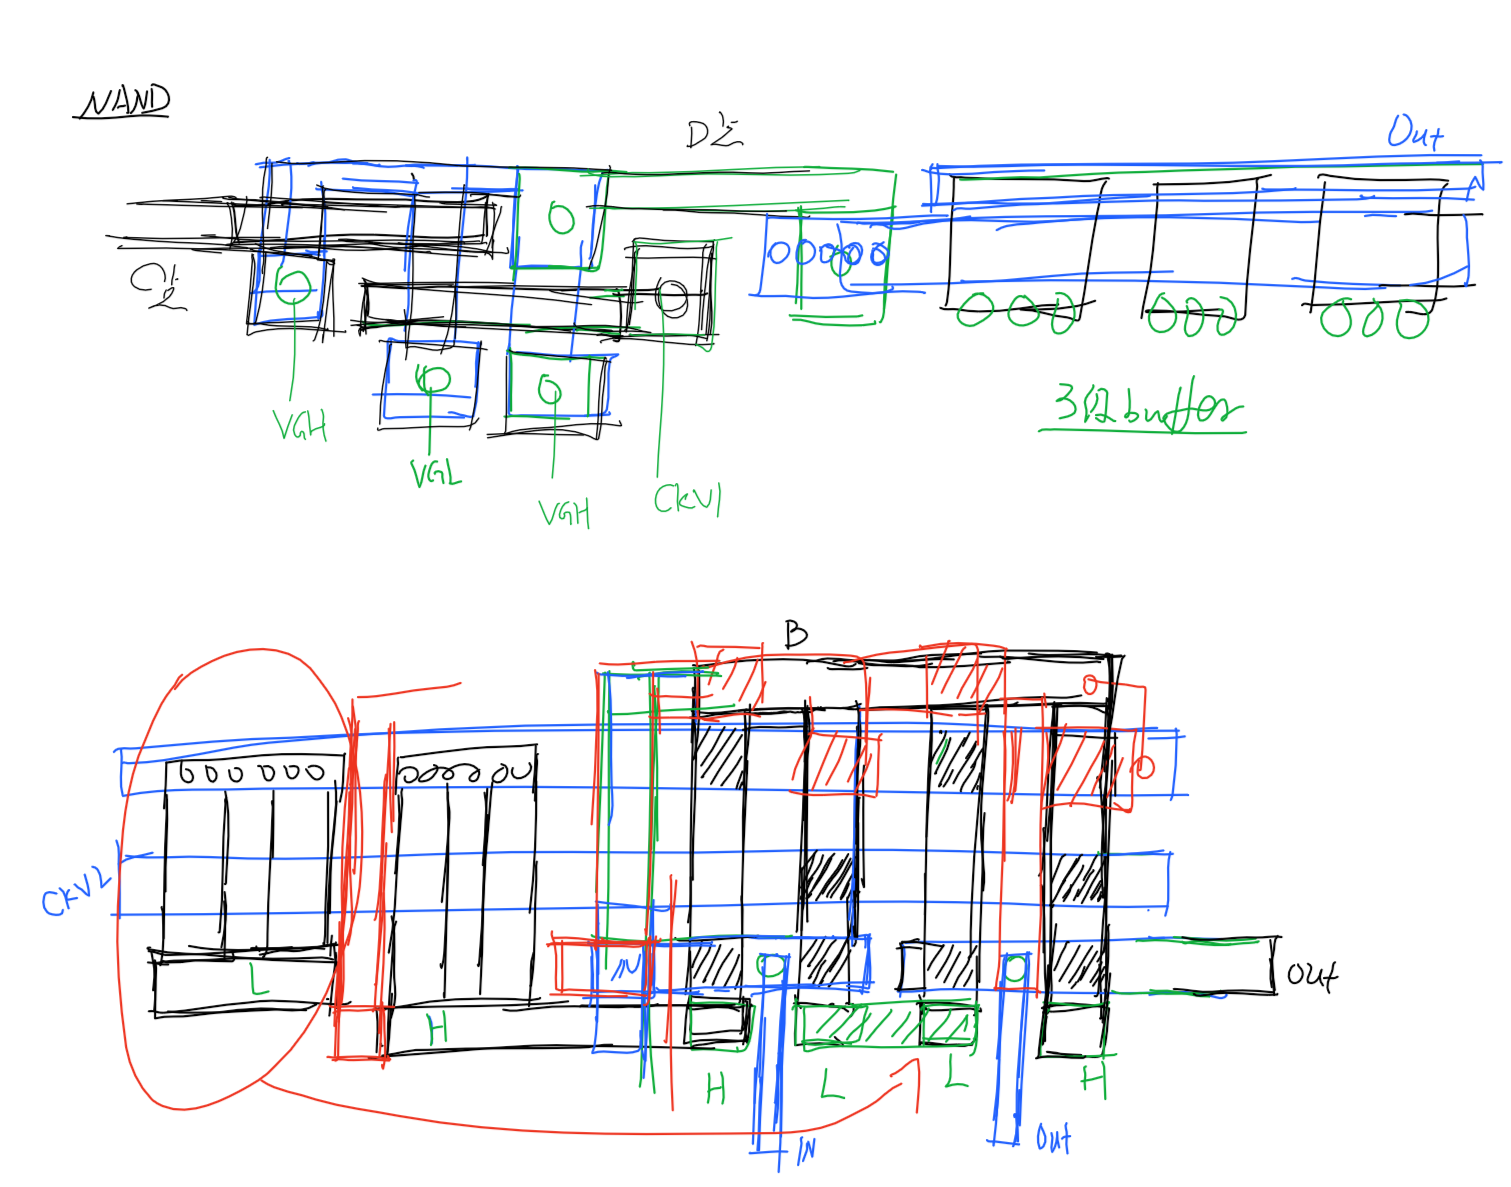 NAND
D点
Out
C点
VGH
VGL
VGH
CKV1
3段buffer
B
CKV2
L
H
IN
H
L
L
H
IN
Out
Out